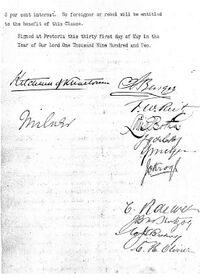 3 per cent interest. No foreigner or rebel will be entitled
to the benefit of this Clause.
Signed at Pretoria this thirty first day of May in the
Year of Our Lord One Thousand Nine Hundred and Two.
Kitchener of Khartoum
Milner
S W Burger
F. W. Reitz
Louis Botha
C. R. de Wet
C. H. Olivier